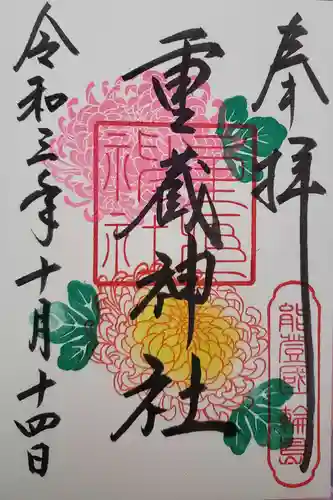 奉拝
重蔵神社
令和三年十月十四日
能登國輪島
重蔵神社